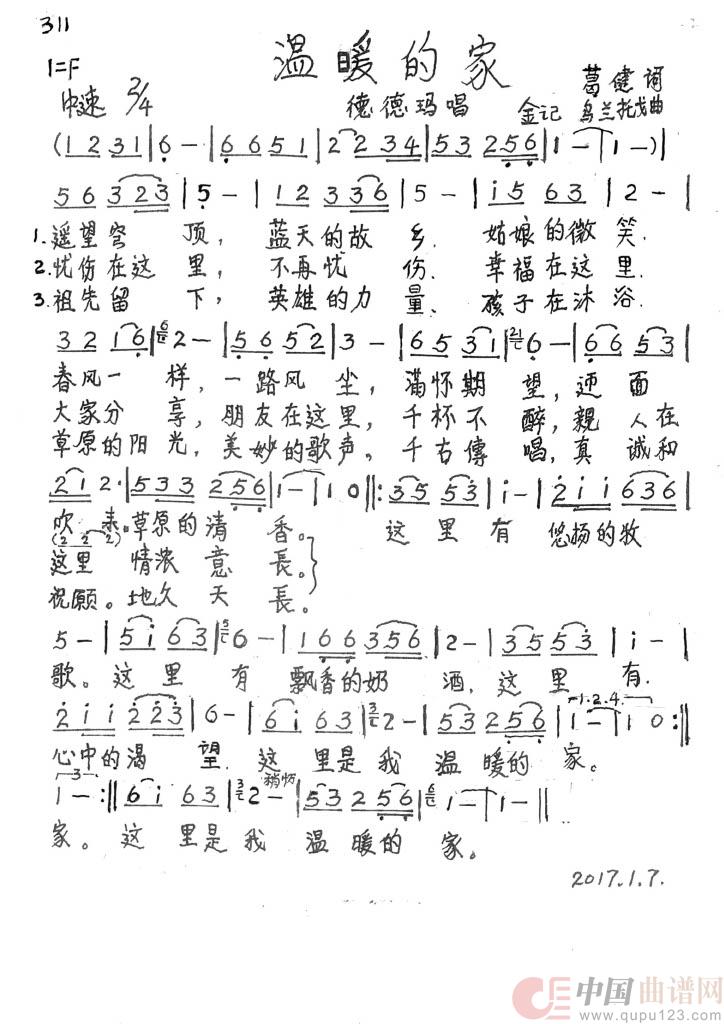 311
温暖的家
1=F
中速 2/4
德德玛唱
葛健词
金记 乌兰托戈曲
(1 2 3 1 | 6 - | 6 6 5 1 | 2 2 3 4 | 5 3 2 5 6 | 1 - | 1 - ) |
5 6 3 2 3 | 5 - | 1 2 3 3 6 | 5 - | i 5 6 3 | 2 - |
1. 遥望穹顶,蓝天的故乡.姑娘的微笑.
2. 忧伤在这里,不再忧伤.幸福在这里.
3. 祖先留下,英雄的力量、孩子在沐浴.
3 2 1 6 | 2 - | 5 6 5 2 | 3 - | 6 5 3 1 | 6 - | 6 6 5 3 |
春风一样,一路风尘,满怀期望,迎面
大家分享,朋友在这里,千杯不醉,親人在
草原的阳光,美妙的歌声,千古傳唱,真诚和
2 1 2· | 5 3 3 2 5 6 | 1 - | 1 0 ‖: 3 5 5 3 | i - | 2 i i 6 3 6 |
吹来.草原的清香。这里有悠扬的牧
(2 2 2)
这里情浓意長。
祝願。地久天長。
5 - | 5 i 6 3 | 6 - | 1 6 6 3 5 6 | 2 - | 3 5 5 3 | i - |
歌。这里有飘香的奶酒,这里有.
2 i i 2 2 3 | 6 - | 6 i 6 3 | 2 - | 5 3 2 5 6 | 1 - | 1 0 :‖
1.2.4.
心中的渴望.这里是我温暖的家。
3
稍忪
1 - :‖ 6 i 6 3 | 2 - | 5 3 2 5 6 | 1 - | 1 - ‖
家。这里是我温暖的家。
2017.1.7.
中国曲谱网
www.qupu123.com